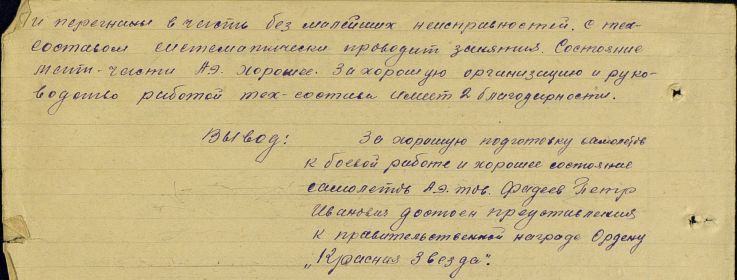 и перегнаны в часть без малейших неисправностей. С тех-
составом систематически проводит занятия. Состояние
мат-части АЭ. хорошее. За хорошую организацию и руко-
водство работой тех-состава имеет 2 благодарности.
Вывод: За хорошую подготовку самолетов
к боевой работе и хорошее состояние
самолетов АЭ тов. Фадеев Петр
Иванович достоин представления
к правительственной награде Ордену
„Красная Звезда".